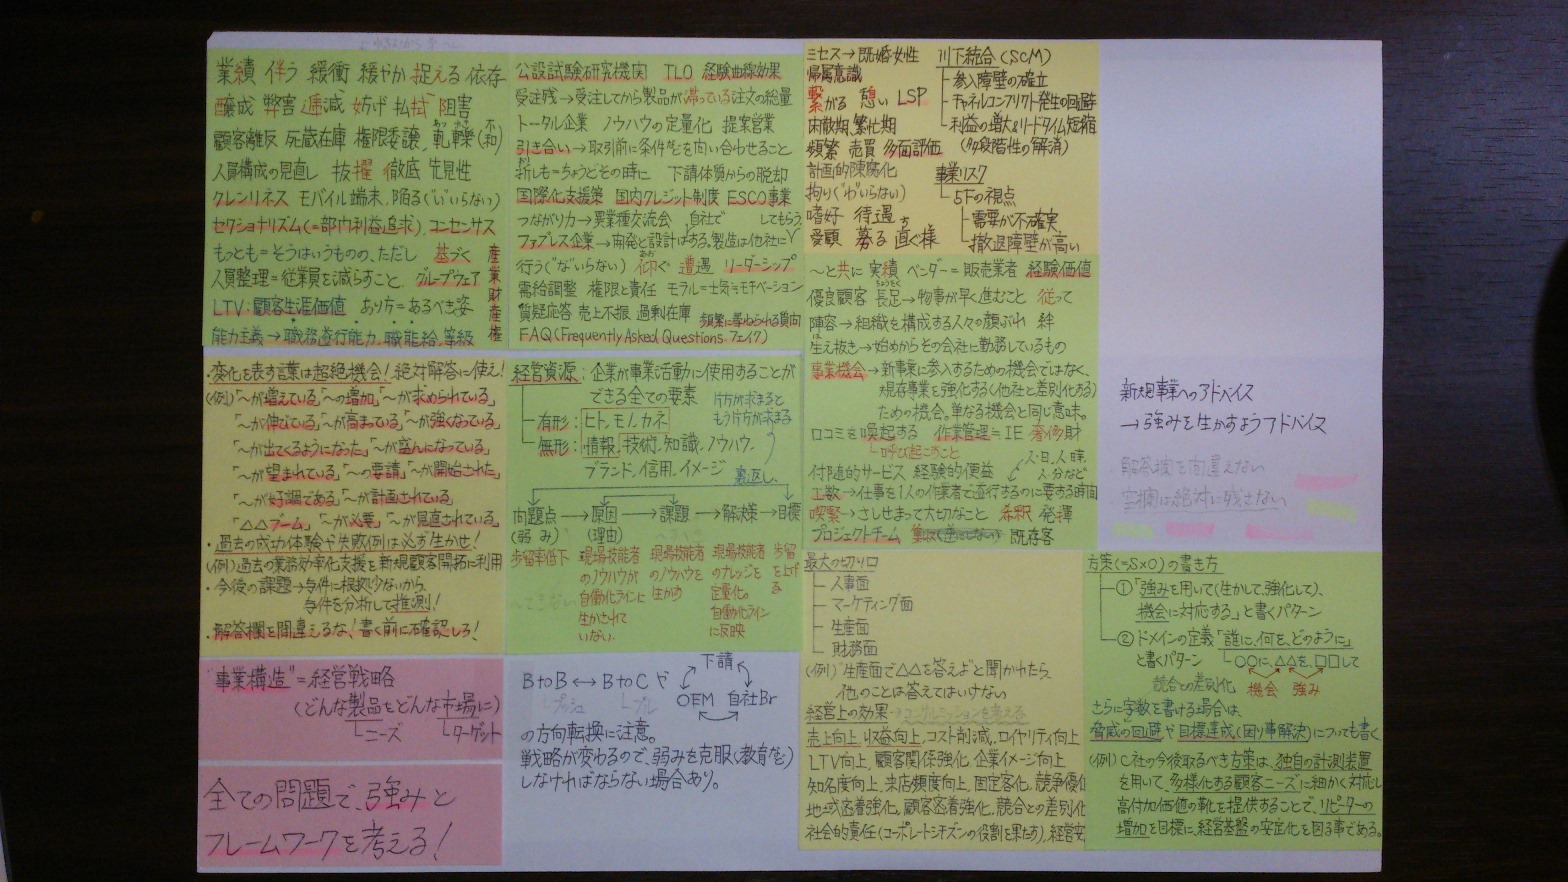 業績 伴う 緩衝 緩やか 捉える 依存
醸成 弊害 逓減 妨げ 払拭 阻害
顧客離反 死蔵在庫 権限委譲 軋轢(不和)
人員構成の見直し 抜擢 徹底 先見性
クレンリネス モバイル端末 陥る("い"いらない)
セクショナリズム(=部内利益追求) コンセンサス
もっとも=そうはいうものの、ただし 基づく
人員整理=従業員を減らすこと グループウェア
LTV:顧客生涯価値 あり方=あるべき姿
能力主義→職務遂行能力、職能給、等級
産業財産権
公設試験研究機関 TLO 経験曲線効果
受注残→受注してから製品が滞っている注文の総量
トータル企業 ノウハウの定量化 提案営業
引き合い→取引前に条件などを問い合わせること
折しも=ちょうどその時に 下請体質からの脱却
国際化支援策 国内クレジット制度 ESCO事業
つながり力→異業種交流会 自社で してもらう
ファブレス企業→開発と設計はする。製造は他社に
行う("な"いらない) 仰ぐ 遭遇 リーダーシップ
需給調整 権限と責任 モラル=士気≒モチベーション
質疑応答 売上不振 過剰在庫 頻繁に尋ねられる質問
FAQ(Frequently Asked Questions フェイク)
ミセス→既婚女性
帰属意識
繋がる 憩い LSP
閑散期、繁忙期
頻繁 売買 多面評価
計画的陳腐化
拘り("わ"いらない)
嗜好 待遇
愛顧 募る 直ぐ様
川下統合(SCM)
参入障壁の確立
チャネルコンフリクト発生の回避
利益の増大&リードタイム短縮
(多段階性の解消)
事業リスク
5Fの視点
需要が不確実
撤退障壁が高い
〜と共に 実績 ベンダー=販売業者 経験価値
優良顧客 長足→物事が早く進むこと 従って
陣容→組織を構成する人々の顔ぶれ 絆
生え抜き→始めからその会社に勤務しているもの
事業機会→新事業に参入するための機会ではなく、
現存事業を強化する(他社と差別化る)
ための機会。単なる機会と同じ意味。
口コミを喚起する 作業管理=IE 奢侈財
呼び起こすこと
人日、人時、
人分など
付随的サービス 経験的便益
工数→仕事を1人の作業者で遂行するのに要する時間
喫緊→さしせまって大切なこと 希釈 発揮
プロジェクトチーム 既存客
・変化を表す言葉は超絶機会!絶対解答に使え!
(例)「〜が増えている」「〜の増加」「〜が求められている」
「〜が伸びている」「〜が高まっている」「〜が強くなっている」
「〜が出てくるようになった」「〜が盛んになっている」
「〜が望まれている」「〜の要請」「〜が開始された」
「〜が好調である」「〜が計画されている」
「△△ブーム」「〜が必要」「〜が見直されている」
・過去の成功体験や失敗例は必ず生かせ!
(例)過去の業務効率化支援を新規顧客開拓に利用
・今後の課題→与件に根拠少ないから
与件を分析して推測!
・解答欄を間違えるな!書く前に確認しろ!
経営資源:企業が事業活動に使用することが
できる全ての要素
有形:ヒト、モノ、カネ
無形:情報、技術、知識、ノウハウ、
ブランド、信用、イメージ
片方が求まると
もう片方が求まる
裏返し
問題点→原因→課題→解決策→目標
(弱み) (理由)
歩留率低下
現場技能者のノウハウが自働化ラインに生かされていない。
現場技能者のノウハウを生かす
現場技能者のナレッジを定量化。自働化ラインに反映
歩留を上げる
新規事業へのアドバイス
→強みを生かすようアドバイス
解答欄を間違えない
空欄は絶対に残さない
"事業構造"=経営戦略
(どんな製品をどんな市場に)
ニーズ ターゲット
全ての問題で、強みと
フレームワークを考える!
BtoB↔BtoCや
プッシュ プル
下請
OEM 自社Br
の方向転換に注意。
戦略が変わるので、弱みを克服(教育など)
しなければならない場合あり。
最大の切り口
人事面
マーケティング面
生産面
財務面
(例)"生産面で△△を答えよ"と聞かれたら、
他のことは答えてはいけない
経営上の効果
売上向上、収益向上、コスト削減、ロイヤリティ向上
LTV向上、顧客関係強化、企業イメージ向上
知名度向上、来店頻度向上、固定客化、競争優位
地域密着強化、顧客密着強化、競合との差別化
社会的責任(コーポレートシチズンの役割を果たす)、経営安
方策(=S×O)の書き方
①「強みを用いて(生かして、強化して)、
機会に対応する」と書くパターン
②ドメインの定義「誰に、何を、どのように」
と書くパターン ○○に、△△を、□□して
競合との差別化 機会 強み
さらに字数を書ける場合は、
脅威の回避や目標達成(困り事解決)についても書く
(例)C社の今後取るべき方策は、独自の計測装置
を用いて、多様化する顧客ニーズに細かく対応し
高付加価値の靴を提供することで、リピーターの
増加を目標に経営基盤の安定化を図る事である。